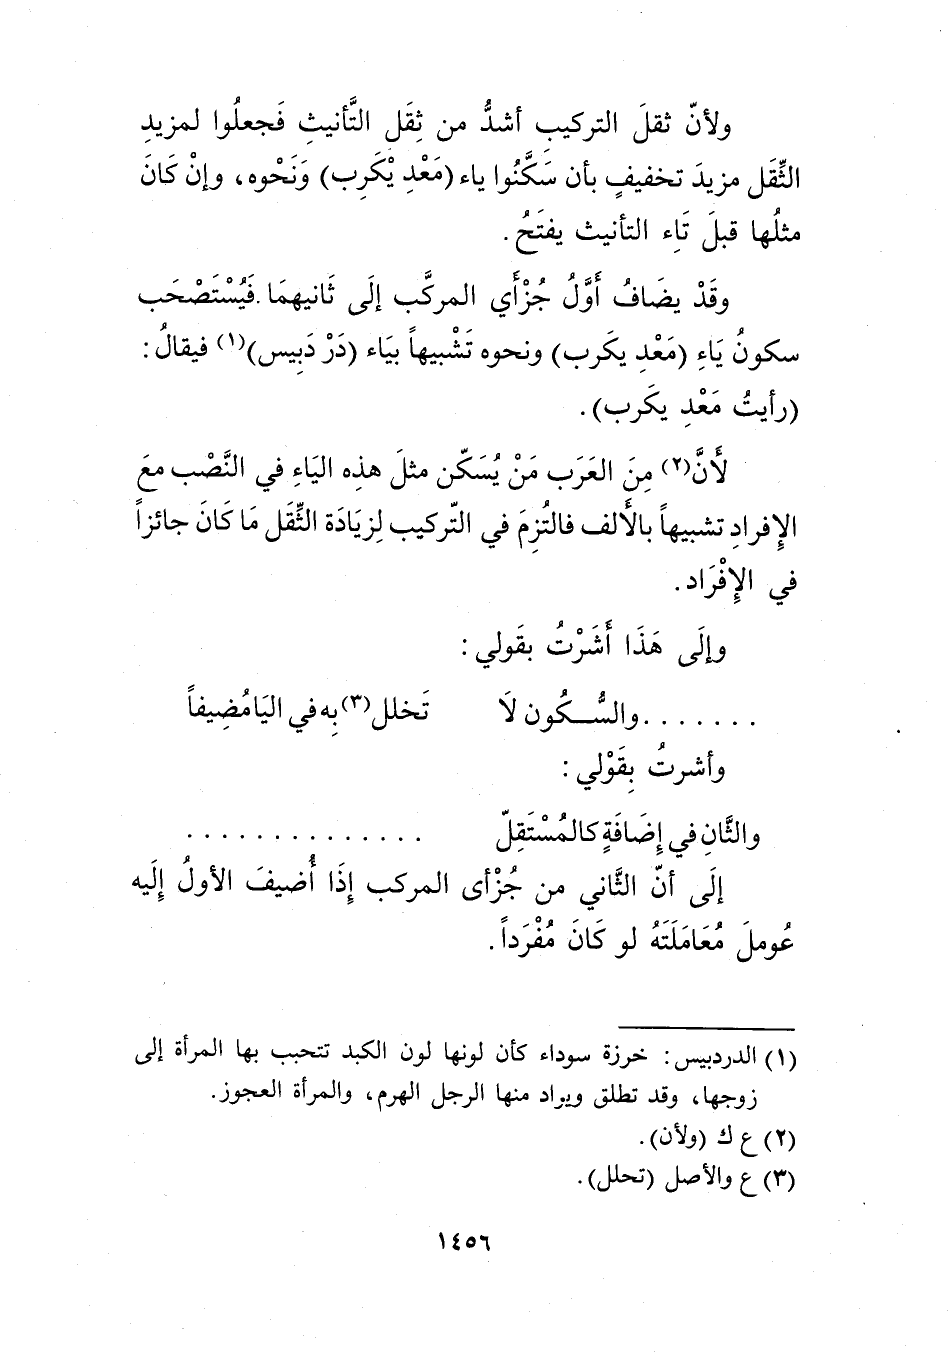 ولأنّ ثقلَ التركيبِ أشدُّ من ثِقَل التَّأنيثِ فَجعلُوا لمزيدِ
الثِّقَل مزيدَ تخفيفٍ بأن سَكَّنُوا ياء (مَعْدِ يْكَرِب) وَنَحْوه، وإنْ كَانَ
مثلُها قبلَ تَاءِ التأنيث يفتَحُ.
وقَدْ يضَافُ أوَّلُ جُزْأَي المركَّب إلَى ثَانيهمَا. فَيُسْتَصْحَب
سكونُ يَاءِ (مَعْدِ يكَرب) ونحوه تَشْبيهاً بيَاء (دَرْ دَبِيس)(١) فيقالُ:
(رأيتُ مَعْدِ يكَرب).
لأَنَّ(٢) مِنَ العَرَب مَنْ يُسَكّن مثلَ هذه اليَاءِ في النَّصْب معَ
الإفرادِ تشبيهاً بالأَلف فالتُزِمَ في التّركيب لِزيَادَة الثِّقَل مَا كَانَ جائزاً
في الإِفْرَاد.
وإلَى هَذَا أَشَرْتُ بقَولي:
.......والسُّكُون لَا تَخلل(٣) بِه في اليَا مُضِيفاً
وأشرتُ بِقَوْلي:
والثَّانِ في إِضَافَةٍ كالمُسْتَقِلّ ..............
إلَى أنّ الثَّاني من جُزْأى المركب إذَا أُضيفَ الأولُ إلَيه
عُوملَ مُعَامَلَتَهُ لو كَانَ مُفْرَداً.
(١) الدردبيس: خرزة سوداء كأن لونها لون الكبد تتحبب بها المرأة إلى
زوجها، وقد تطلق ويراد منها الرجل الهرم، والمرأة العجوز.
(٢) ع ك (ولأن).
(٣) ع والأصل (تحلل).
١٤٥٦